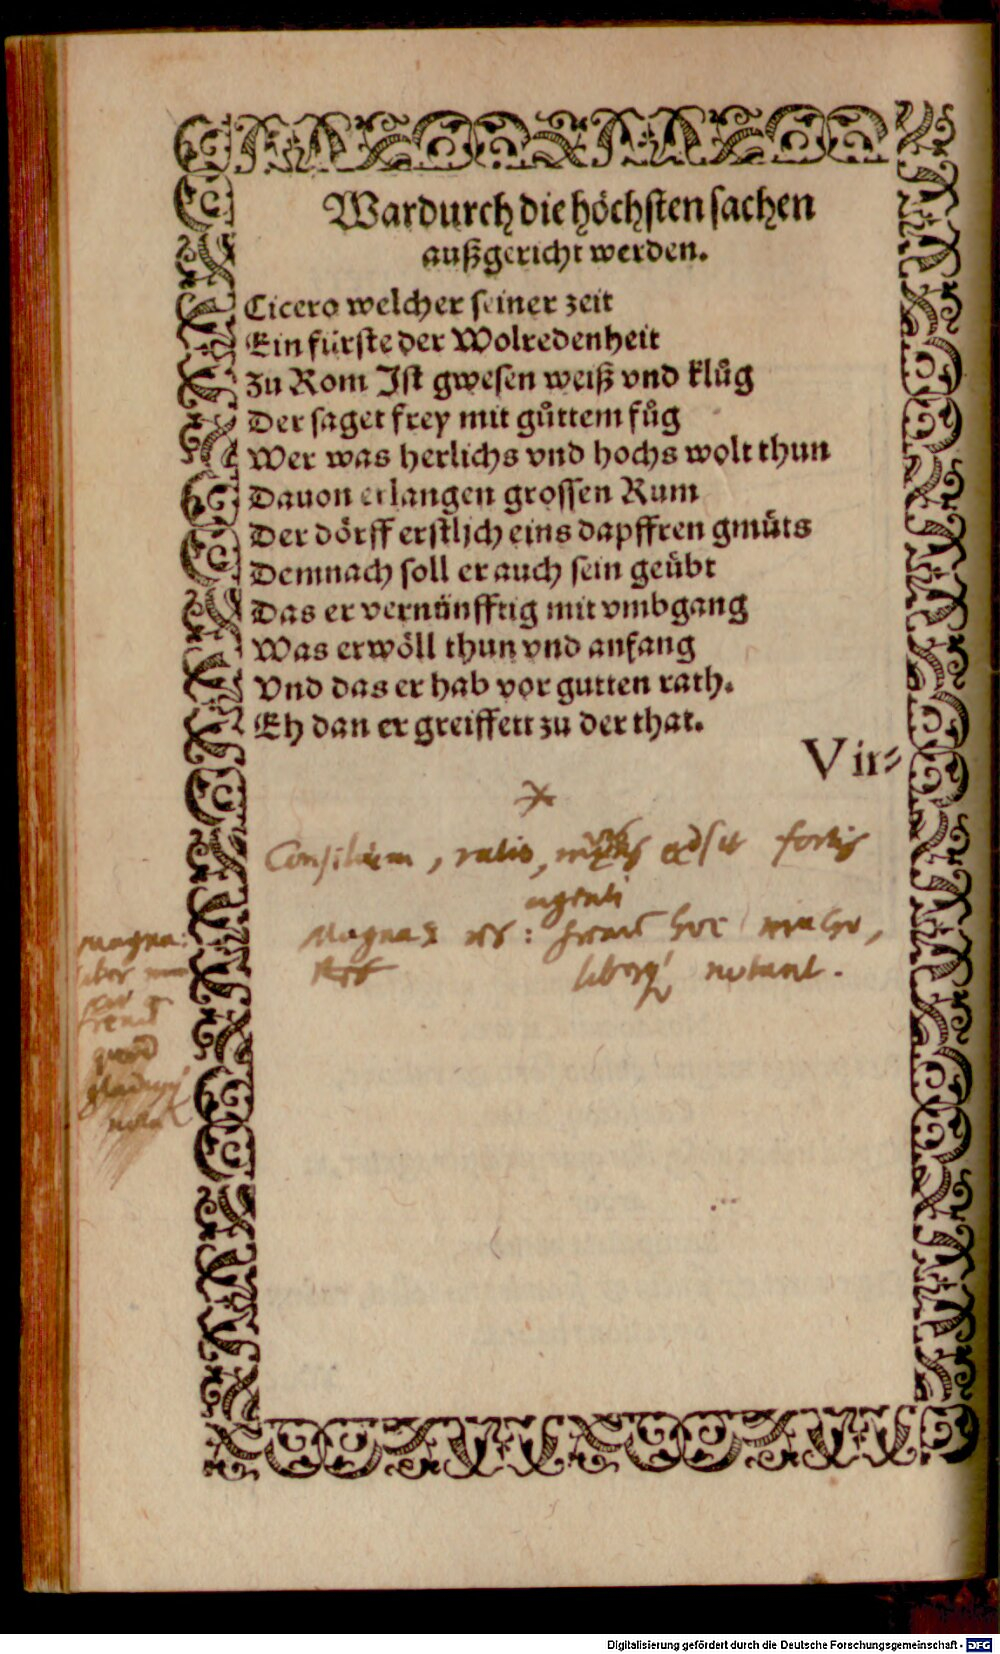 Wardurch die höchsten sachen
außgericht werden.
Cicero welcher seiner zeit
Ein fürste der Wolredenheit
Zu Rom Ist gwesen weiß vnd klůg
Der saget frey mit gůttem fůg
Wer was herlichs vnd hochs wolt thun
Dauon erlangen grossen Rum
Der dörff erstlich eins dapffren gmüts
Demnach soll er auch sein geübt
Das er vernünfftig mit vmbgang
Was er wöll thun vnd anfang
Vnd das er hab vor gutten rath.
Eh dan er greiffett zu der that.
Vir⸗
Consilium, ratio, adsit fortis
agenti
Magna res: hoc
notant.
Magna:
liber
quod
Digitalisierung gefördert durch die Deutsche Forschungsgemeinschaft - DFG